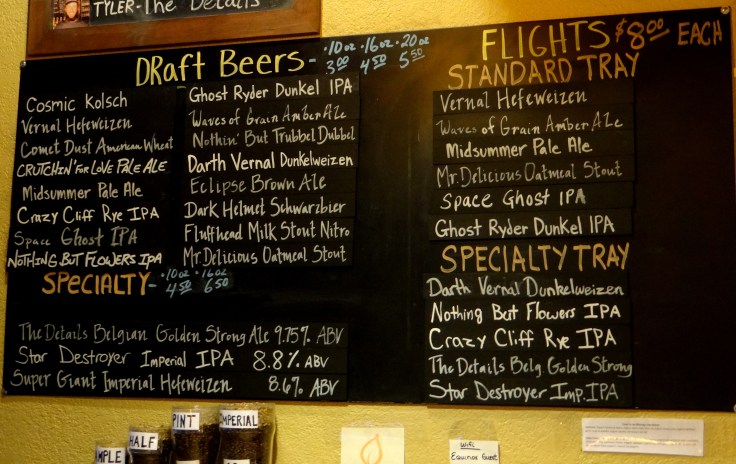 TYLER-The Details
DRaft Beers - ·10oz ·16oz ·20oz
3.00 4.50 5.50
Cosmic Kolsch
Vernal Hefeweizen
Comet Dust American Wheat
CRUTCHIN' FOR LOVE PALE ALE
Midsummer Pale Ale
Crazy Cliff Rye IPA
Space Ghost IPA
NOTHING BUT FLOWERS IPA
Ghost Ryder Dunkel IPA
Waves of Grain Amber ALe
Nothin' But Trubbel Dubbel
Darth Vernal Dunkelweizen
Eclipse Brown Ale
Dark Helmet Schwarzbier
Fluffhead Milk Stout Nitro
Mr. Delicious Oatmeal Stout
SPECIALTY - ·10oz ·16oz
4.50 6.50
The Details Belgian Golden Strong Ale 9.75% ABV
Star Destroyer Imperial IPA 8.8% ABV
Super Giant Imperial Hefeweizen 8.6% ABV
FLIGHTS $8.00 EACH
STANDARD TRAY
Vernal Hefeweizen
Waves of Grain Amber ALe
Midsummer Pale Ale
Mr. Delicious Oatmeal Stout
Space Ghost IPA
Ghost Ryder Dunkel IPA
SPECIALTY TRAY
Darth Vernal Dunkelweizen
Nothing But Flowers IPA
Crazy Cliff Rye IPA
The Details Belg. Golden Strong
Star Destroyer Imp. IPA
HALF
PINT
IMPERIAL
Wifi
Equinox Guest